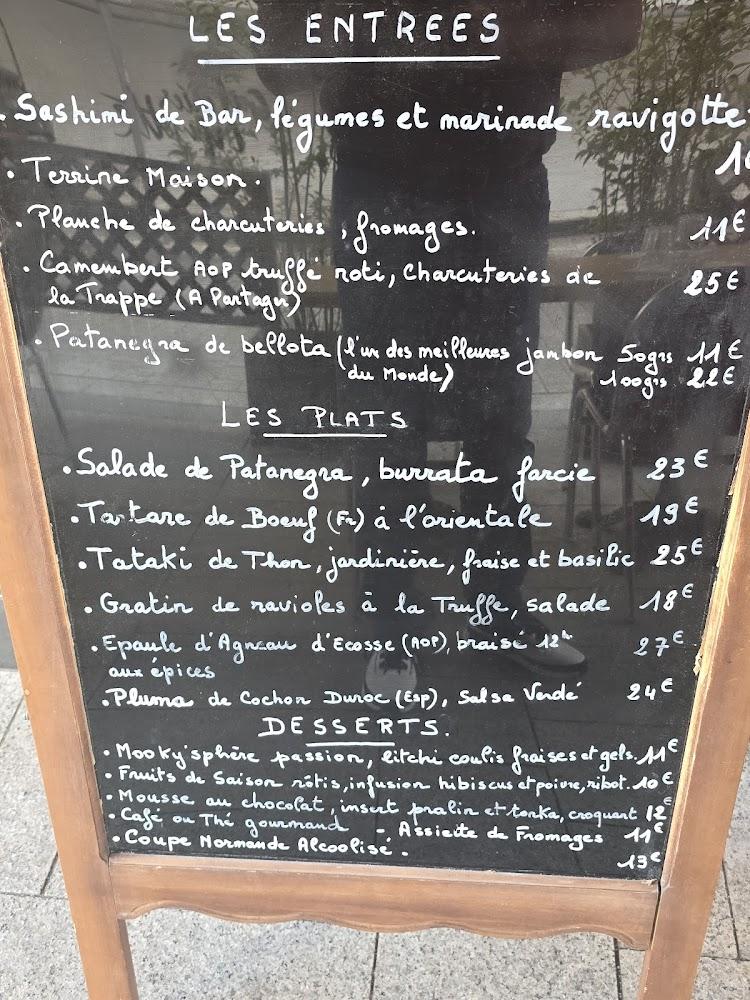 LES ENTREES
. Sashimi de Bar, légumes et marinade ravigotte
. Terrine Maison.
. Planche de charcuteries, fromages. 11€
. Camembert AOP truffé roti, charcuteries de
la Trappe (A Partager) 25€
. Patanegra de bellota (l'un des meilleures jambon 50grs 11€
du Monde) 100grs 22€
LES PLATS
. Salade de Patanegra, burrata farcie 23€
. Tartare de Boeuf (Fr) à l'orientale 19€
. Tataki de Thon, jardinière, fraise et basilic 25€
. Gratin de ravioles à la Truffe, salade 18€
. Epaule d'Agneau d'Ecosse (AOP), braisé 12h 27€
aux épices
. Pluma de Cochon Duroc (Esp), Salsa Verdé 24€
DESSERTS.
. Mooky'sphère passion, litchi coulis fraises et gels. 11€
. Fruits de Saison rôtis, infusion hibiscus et poivre, ribot. 10€
. Mousse au chocolat, insert pralin et tonka, croquant 12€
. Café ou Thé gourmand -. Assiette de Fromages 11€
. Coupe Normande Alcoolisé. 13€